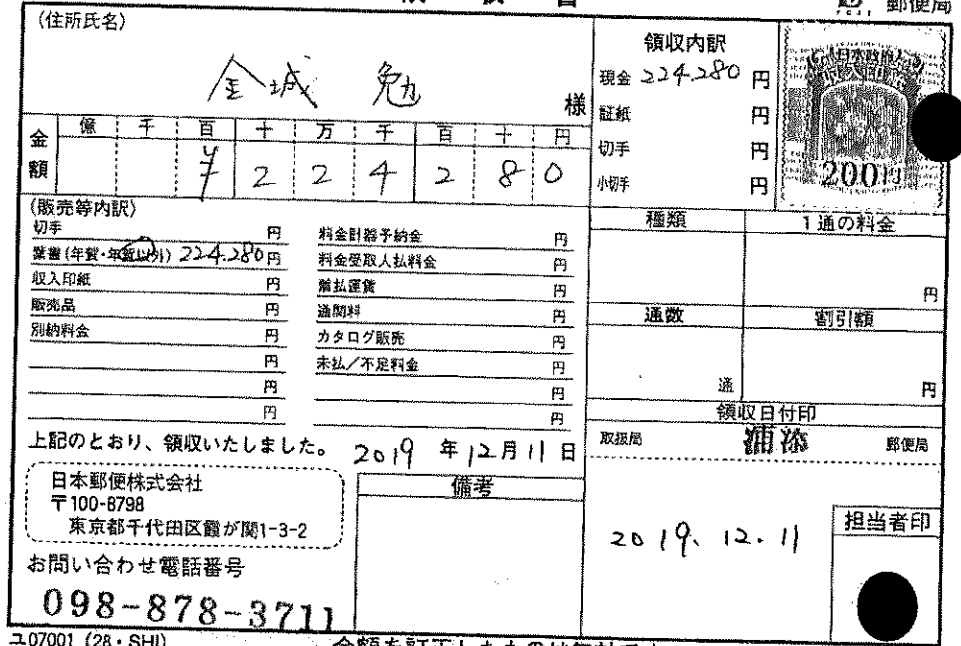 領収書
郵便局
(住所氏名)
金城 勉 様
領収内訳
現金 224.280 円
証紙 円
切手 円
小切手 円
日本政府
200円
金額 億 千 百 十 万 千 百 十 円
¥ 2 2 4 2 8 0
(販売等内訳)
切手 円
葉書(年賀・年賀以外) 224.280円
収入印紙 円
販売品 円
別納料金 円
円
円
円
料金計器予納金 円
料金受取人払料金 円
後払運賃 円
通関料 円
カタログ販売 円
未払/不足料金 円
円
円
種類 1通の料金
円
通数 割引額
通 円
領収日付印
取扱局 浦添 郵便局
2019. 12. 11
担当者印
上記のとおり、領収いたしました。 2019 年 12月 11 日
日本郵便株式会社
〒100-8798
東京都千代田区霞が関1-3-2
備考
お問い合わせ電話番号
098-878-3711
ユ07001 (28・SHI)